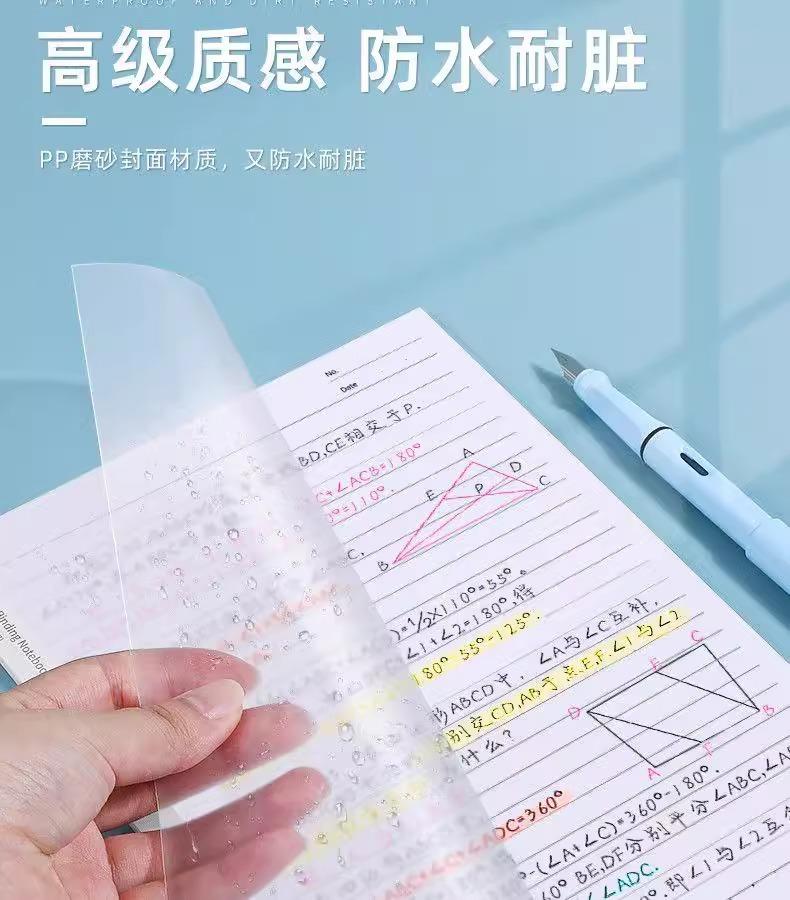 WATERPROOF AND DIRT RESISTANT
高级质感 防水耐脏
PP磨砂封面材质，又防水耐脏
No.
Date
BD,CE相交于P.
C+∠ACB=180°
0°=110°.
A
D
E
P
C
C.
B
)=1/2×110°=55°.
∠1+∠2=180°,得
180°-55°=125°.
ABCD中，∠A与∠C互补,
别交CD,AB于点E,F.∠1与∠2
什么?
C
E
D
B
F
A
ADC=360°
°-(∠A+∠C)=360°-180°.
60° BE,DF分别平分∠ABC,∠A
∠ADC.
°.即∠1与∠2互
Binding Notebook